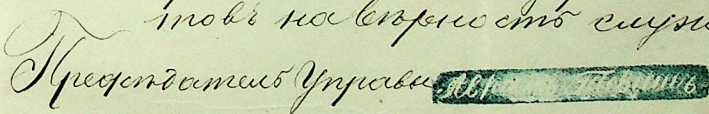 товъ на вѣрность служ
Предсѣдатель Управы